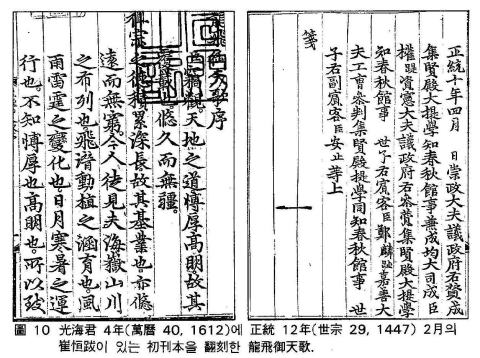 正統十年四月 日崇政大夫議政府右賛成
集賢殿大提學知春秋館事兼成均大司成臣
權踶資憲大夫議政府右參賛集賢殿大提學
知春秋館事 世子右賓客臣鄭麟趾嘉善大
夫工曹參判集賢殿提學同知春秋館事 世
子右副賓客臣安止等上
箋
龍飛御天歌序
臣竊觀天地之道博厚高明故其
覆載也。悠久而無疆。
宗之德積累深長故其基業也。亦悠
遠而無窮。今人徒見夫海嶽山川
之布列也飛潛動植之涵育也。風
雨雷霆之變化也日月寒暑之運
行也。不知博厚也高明也。所以致
圖 10 光海君 4年(萬曆 40, 1612)에 正統 12年(世宗 29, 1447) 2月의
崔恒跋이 있는 初刊本을 翻刻한 龍飛御天歌.